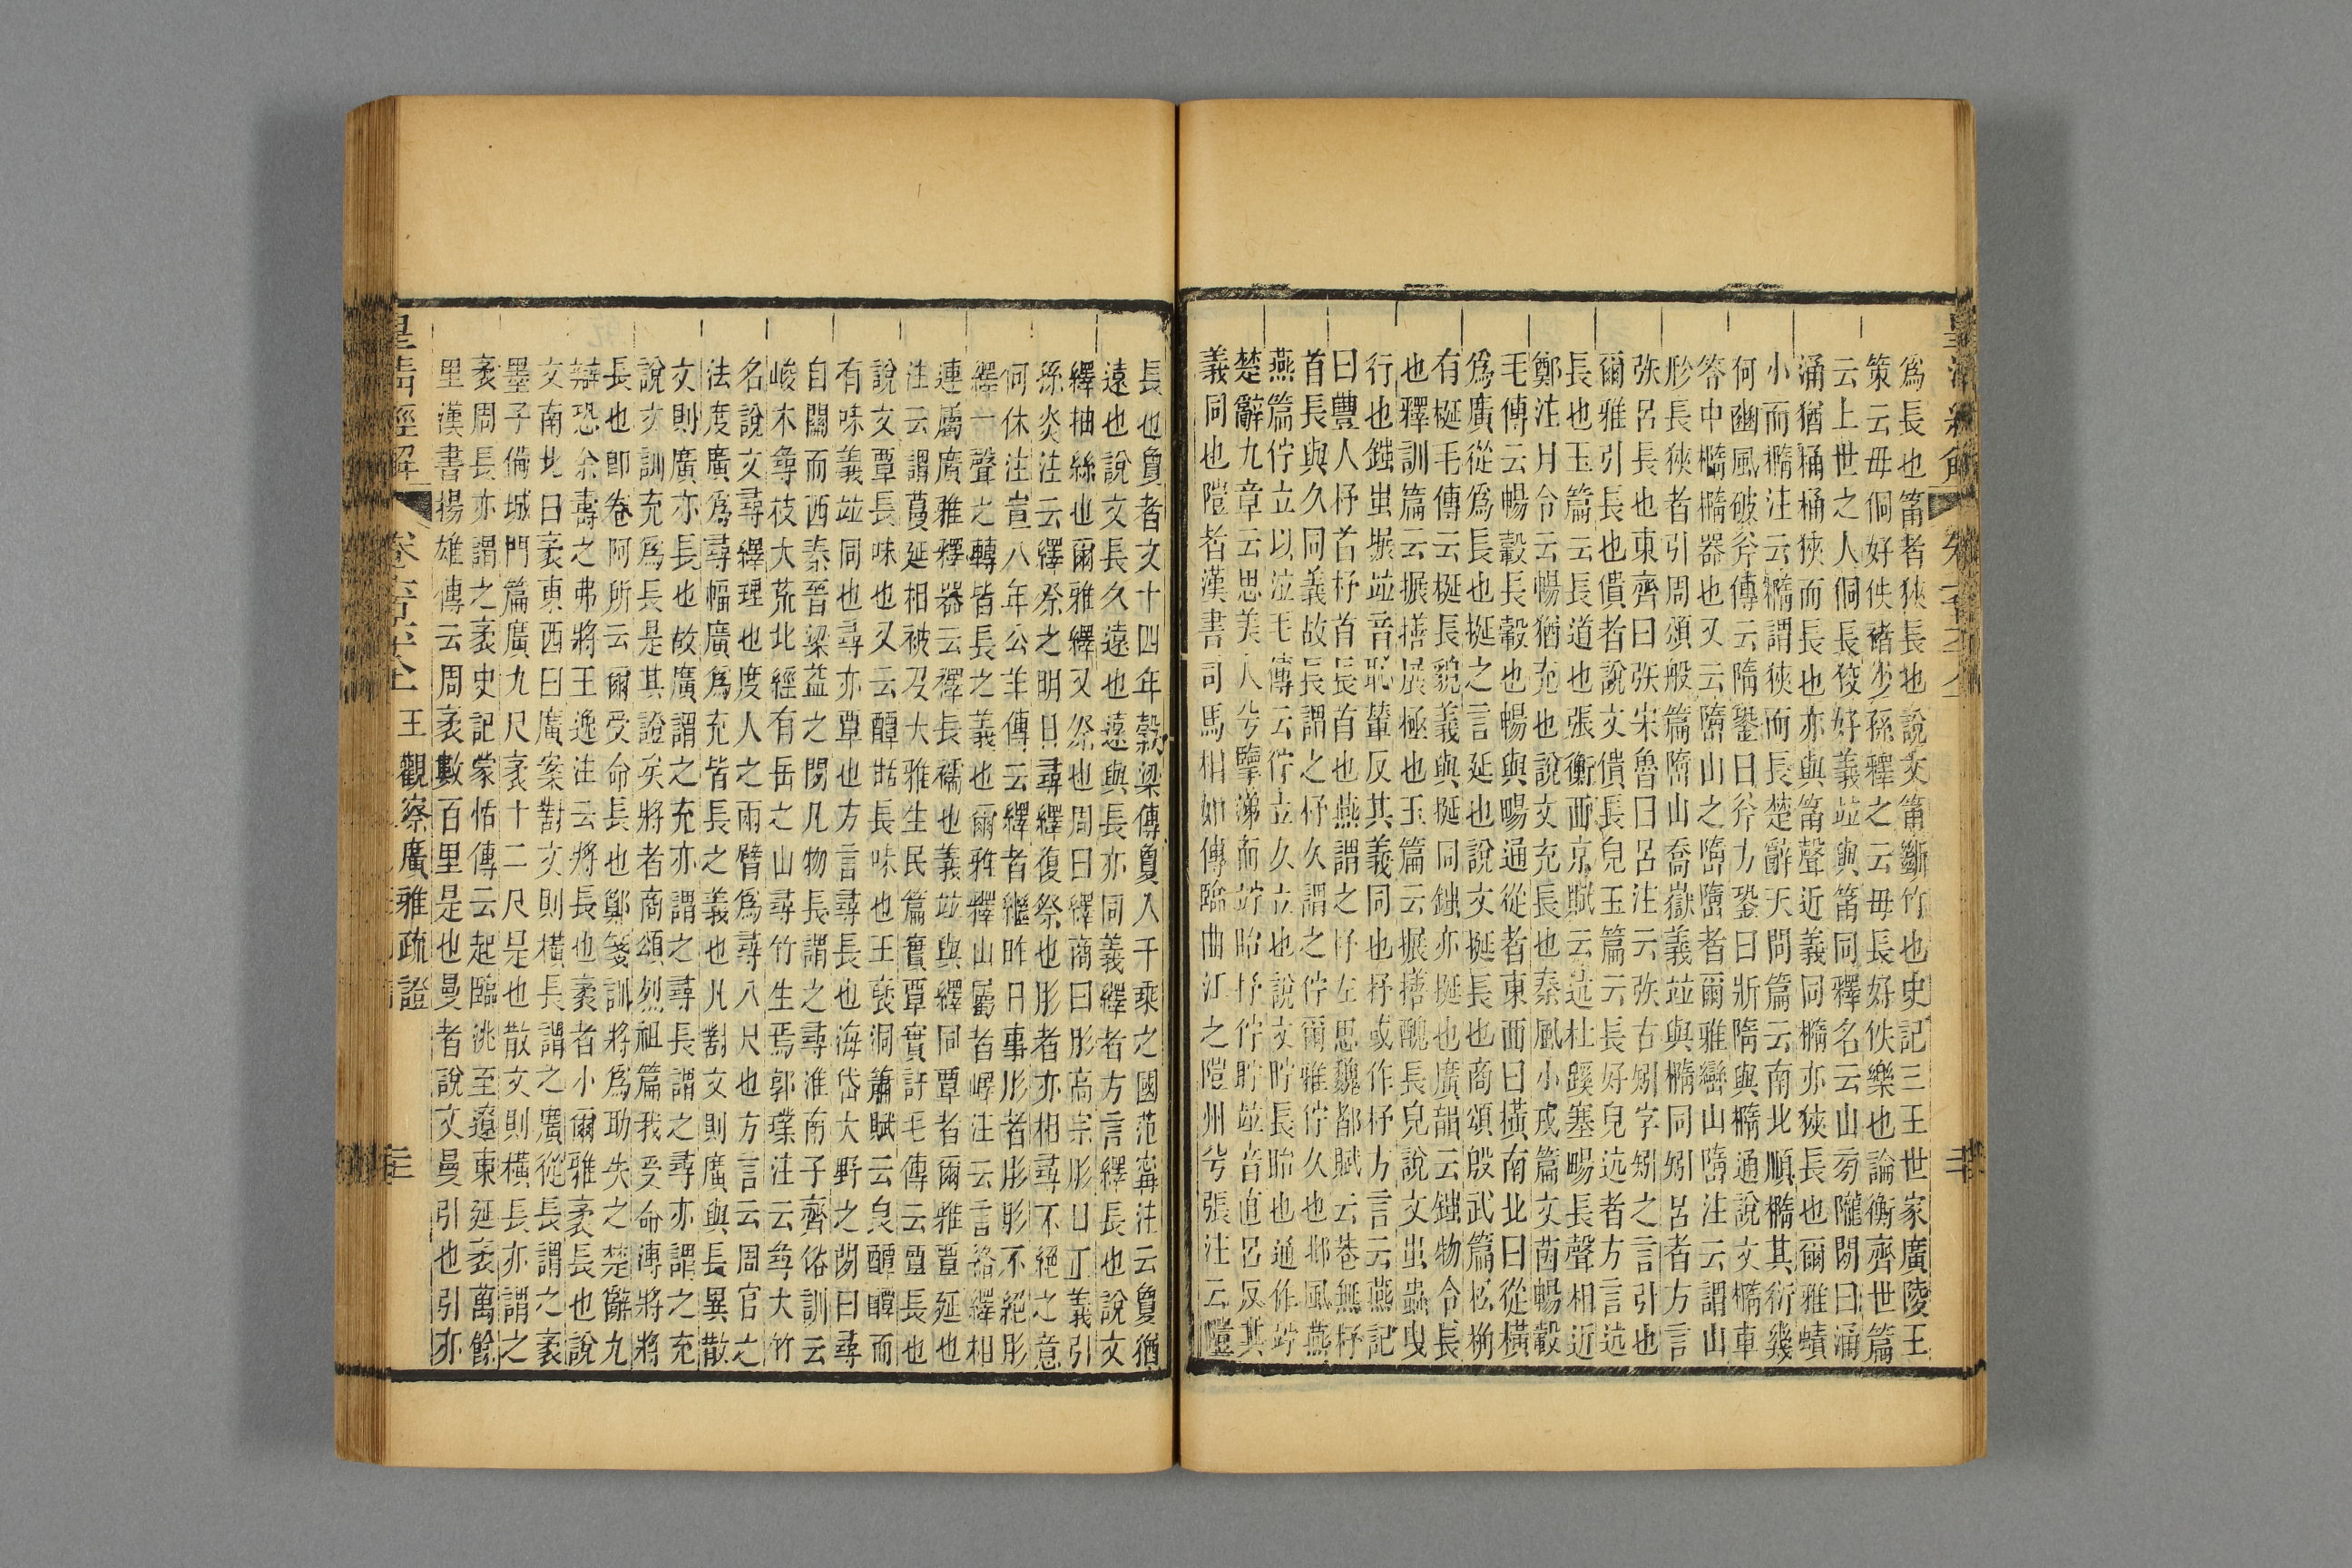 爲長也筩者狹長也說文筩斷竹也史記三王世家廣陵王
策云毋侗好佚褚少孫釋之云毋長好佚樂也論衡齊世篇
云上世之人侗長佼好義竝與筩同釋名云山旁隴閒曰涌
涌猶桶桶狹而長也亦與筩聲近義同橢亦狹長也爾雅蟦
小而橢注云橢謂狹而長楚辭天問篇云南北順橢其衍幾
何豳風破斧傳云隋銎曰斧方銎曰斨隋與橢通說文橢車
笭中橢橢器也又云嶞山之嶞嶞者爾雅巒山嶞注云謂山
形長狹者引周頌般篇嶞山喬嶽義竝與橢同矧呂者方言
弥呂長也東齊曰弥宋魯曰呂注云弥古矧字矧之言引也
爾雅引長也僓者說文僓長皃玉篇云長好皃远者方言远
長也玉篇云長道也張衡西京賦云远杜蹊塞畼長聲相近
鄭注月令云暢猶充也說文充長也秦風小戎篇文茵暢轂
毛傳云暢轂長轂也暢與畼通從者東西曰橫南北曰從橫
爲廣從爲長也挻之言延也說文挻長也商頌殷武篇松桷
有梴毛傳云梴長貌義與挻同亦挻也廣韻云物令長
也釋訓篇云搌搘展極也玉篇云搌搘醜長皃說文𧈪蟲曳
行也𧈪搌竝音恥輦反其義同也杼或作杼方言云燕記
曰豐人杼首杼首長首也燕謂之杼左思魏都賦云巷無杼
首長與久同義故長謂之杼久謂之佇爾雅佇久也邶風燕
燕篇佇立以泣毛傳云佇立久立也說文眝長眙也通作竚
楚辭九章云思美人兮擥涕而竚眙杼佇眝竝音直呂反其
義同也隑者漢書司馬相如傳臨曲江之隑州兮張注云隑
長也敻者文十四年穀梁傳敻入千乘之國范甯注云敻猶
遠也說文長久遠也遠與長亦同義繹者方言繹長也說文
繹抽絲也爾雅繹又祭也周曰繹商曰肜高宗肜日正義引
孫炎注云繹祭之明日尋繹復祭也肜者亦相尋不絕之意
何休注宣八年公羊傳云繹者繼昨日事肜者肜肜不絕肜
繹一聲之轉皆長之義也爾雅釋山屬者嶧注云言絡繹相
連屬廣雅釋器云襗長襦也義竝與繹同覃者爾雅覃延也
注云謂蔓延相被及大雅生民篇實覃實訏毛傳云覃長也
說文覃長味也又云醰䣶長味也王褎洞簫賦云良醰醰而
有味義竝同也尋亦覃也方言尋長也海岱大野之閒曰尋
自關而西秦晉梁益之閒凡物長謂之尋淮南子齊俗訓云
峻木尋枝大荒北經有岳之山尋竹生焉郭璞注云尋大竹
名說文尋繹理也度人之兩臂爲尋八尺也方言云周官之
法度廣爲尋幅廣爲充皆長之義也凡對文則廣與長異散
文則廣亦長也故廣謂之充亦謂之尋長謂之尋亦謂之充
說文訓充爲長是其證矣將者商頌烈祖篇我受命溥將將
長也卽卷阿所云爾受命長也鄭箋訓將爲助失之楚辭九
辯恐余壽之弗將王逸注云將長也袤者小爾雅袤長也說
文南北曰袤東西曰廣案對文則橫長謂之廣從長謂之袤
墨子備城門篇廣九尺袤十二尺是也散文則橫長亦謂之
袤周長亦謂之袤史記蒙恬傳云起臨洮至遼東延袤萬餘
里漢書揚雄傳云周袤數百里是也曼者說文曼引也引亦
皇清經解 王觀察廣雅疏證